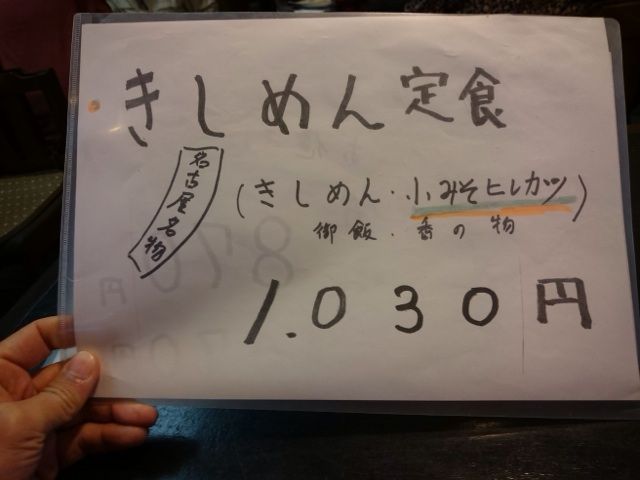 きしめん定食
名古屋名物
(きしめん・小みそヒレカツ)
御飯・香の物
1.030円